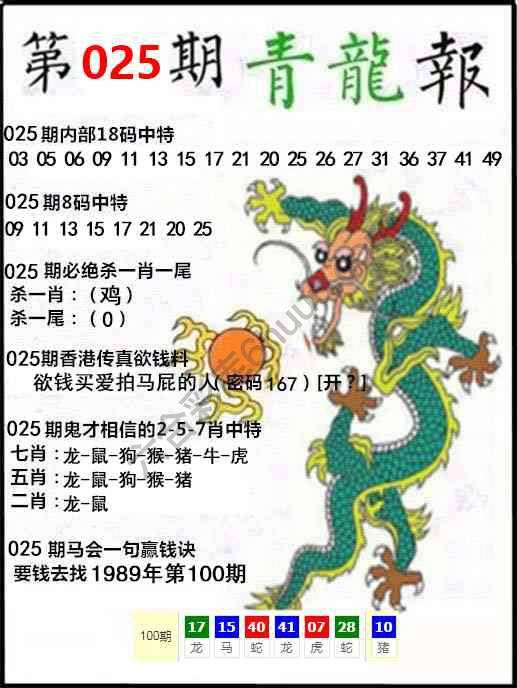 第025期青龍報
025期内部18码中特
03 05 06 09 11 13 15 17 21 20 25 26 27 31 36 37 41 49
025期8码中特
09 11 13 15 17 21 20 25
025 期必绝杀一肖一尾
杀一肖：（鸡）
杀一尾：（0）
025期香港传真欲钱料
欲钱买爱拍马屁的人(密码167）[开？]
025期鬼才相信的2-5-7肖中特
七肖：龙-鼠-狗-猴-猪-牛-虎
五肖：龙-鼠-狗-猴-猪
二肖：龙-鼠
025 期马会一句赢钱诀
要钱去找1989年第100期
100期 17 15 40 41 07 28 10
龙 马 蛇 龙 虎 蛇 猪